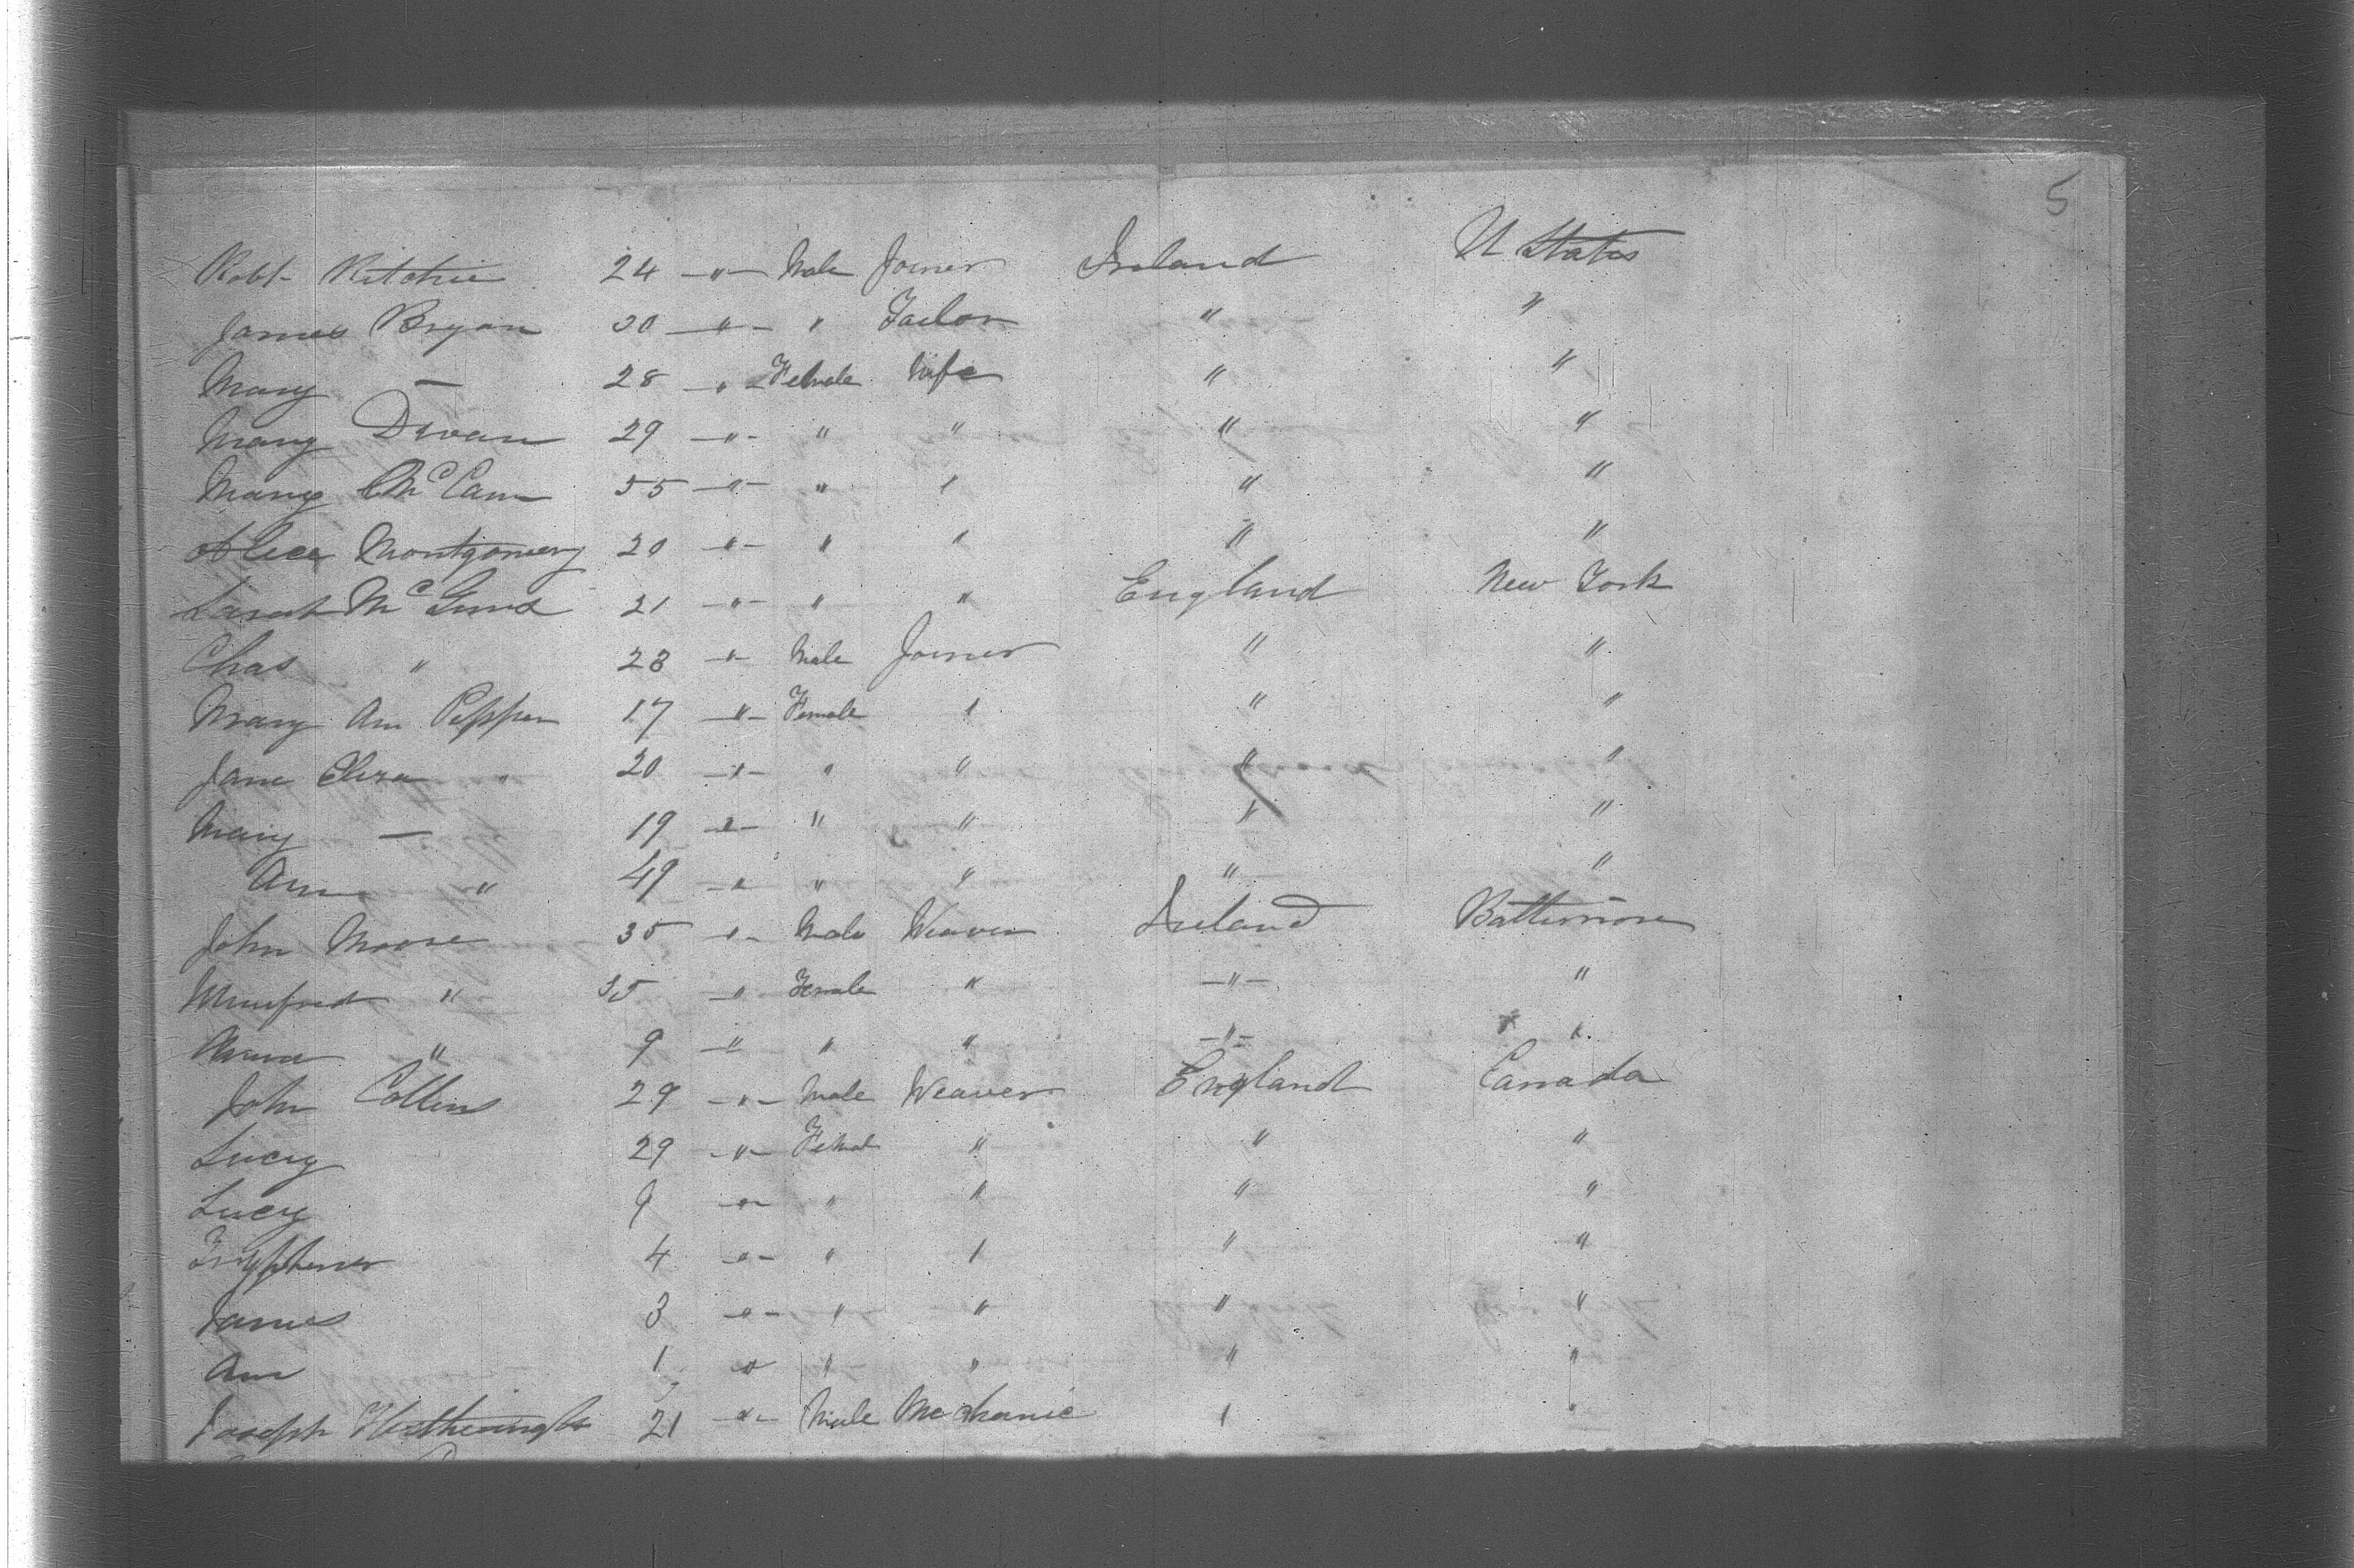 5
Robt Ritchie 24 —"— Male Joiner Ireland U States
James Bryan 30 —"— " Tailor " "
Mary — 28 —"— Female Wife " "
Mary Devan 29 —"— " " " "
Mary McCann 55 —"— " " " "
Alice Montgomery 20 —"— " " " "
Sarah 21 —"— " " England New York
Chas " 28 —"— Male Joiner " "
Mary Ann Pepper 17 —"— Female " " "
Jane Eliza " 20 —"— " " " "
Mary — 19 —"— " " " "
Ann " 49 —"— " " " "
John Moore 35 —"— Male Weaver Ireland Baltimore
Winifred " 35 —"— Female " —"— "
" 9 —"— " " —"— "
John Collins 29 —"— Male Weaver England Canada
Lucy 29 —"— Femal " " "
Lucy 9 —"— " " " "
4 —"— " " " "
James 3 —"— " " " "
Ann 1 " " " " "
Joseph 21 —"— Male Mechanic " "